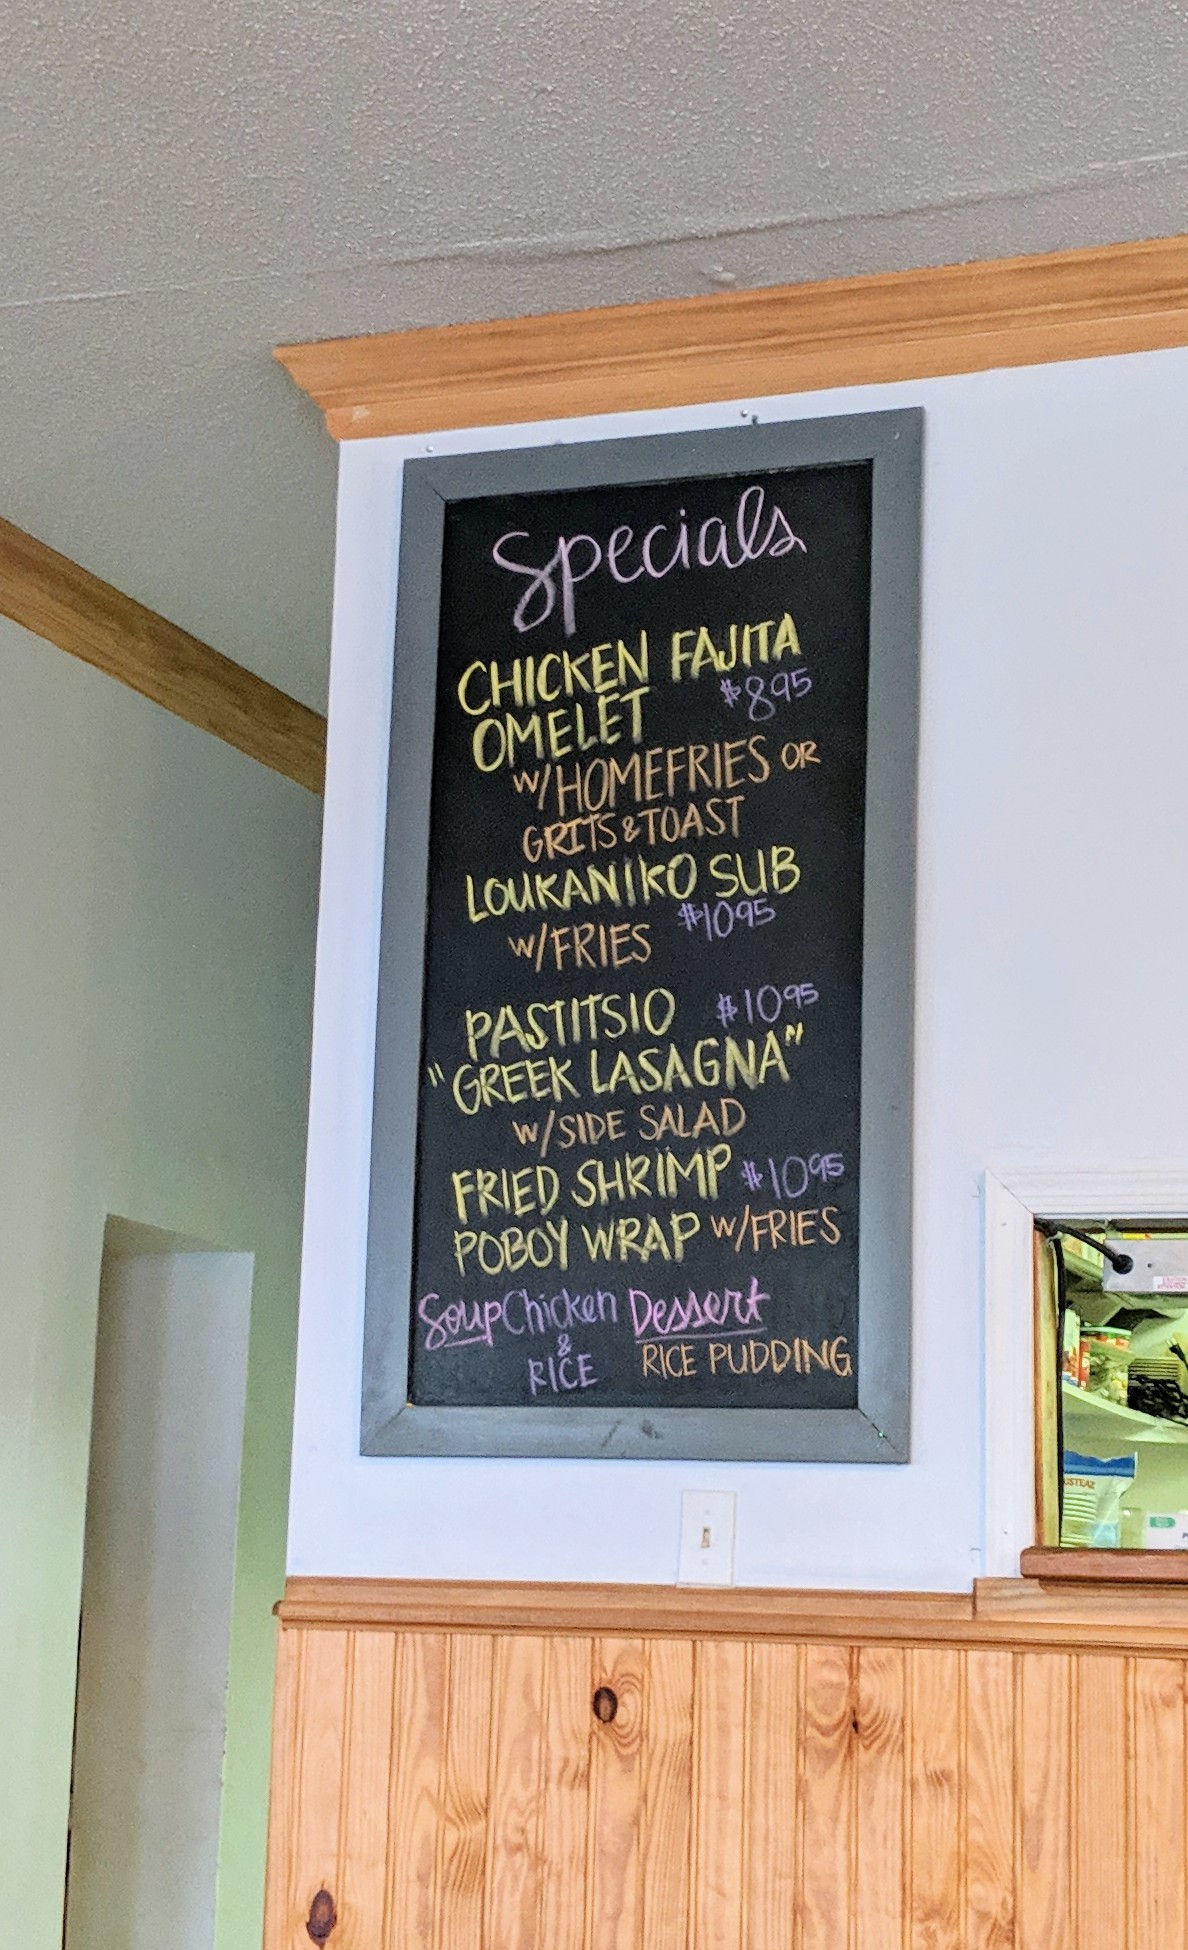 Specials
CHICKEN FAJITA
OMELET $8.95
w/HOMEFRIES OR
GRITS & TOAST
LOUKANIKO SUB
w/FRIES $10.95
PASTITSIO $10.95
"GREEK LASAGNA"
w/SIDE SALAD
FRIED SHRIMP $10.95
POBOY WRAP w/FRIES
Soup Chicken
&
RICE
Dessert
RICE PUDDING